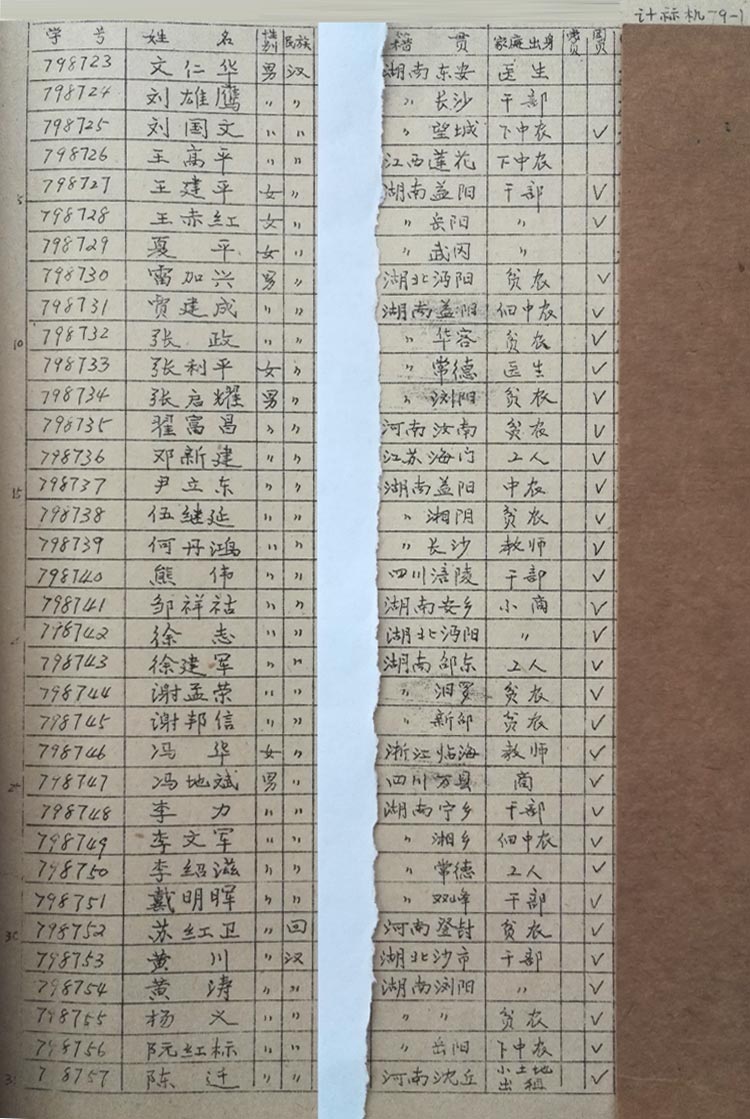 计标机79-1
学号 姓名 性别 民族 籍贯 家庭出身 党员 团员
798723 文仁华 男 汉 湖南东安 医生
798724 刘雄鹰 〃 〃 〃 长沙 干部
798725 刘国文 〃 〃 〃 望城 下中农 ✓
798726 王高平 〃 〃 江西莲花 下中农
5 798727 王建平 女 〃 湖南益阳 干部 ✓
798728 王赤红 女 〃 〃 岳阳 〃 ✓
798729 夏平 女 〃 〃 武冈 〃
798730 雷加兴 男 〃 湖北沔阳 贫农 ✓
798731 贾建成 〃 〃 湖南益阳 佃中农 ✓
10 798732 张政 〃 〃 〃 华容 贫农 ✓
798733 张利平 女 〃 〃 常德 医生 ✓
798734 张启耀 男 〃 〃 浏阳 贫农 ✓
798735 翟富昌 〃 〃 河南汝南 贫农 ✓
798736 邓新建 〃 〃 江苏海门 工人 ✓
15 798737 尹立东 〃 〃 湖南益阳 中农 ✓
798738 伍继延 〃 〃 〃 湘阴 贫农 ✓
798739 何丹鸿 〃 〃 〃 长沙 教师 ✓
798740 熊伟 〃 〃 四川涪陵 干部 ✓
798741 邹祥祜 〃 〃 湖南安乡 小商 ✓
798742 徐志 〃 〃 湖北沔阳 〃 ✓
798743 徐建军 〃 〃 湖南邵东 工人 ✓
798744 谢孟荣 〃 〃 〃 汨罗 贫农 ✓
798745 谢邦信 〃 〃 〃 新邵 贫农 ✓
798746 冯华 女 〃 浙江临海 教师 ✓
798747 冯地斌 男 〃 四川万县 商 ✓
798748 李力 〃 〃 湖南宁乡 干部 ✓
798749 李文军 〃 〃 〃 湘乡 佃中农 ✓
798750 李绍滋 〃 〃 〃 常德 工人 ✓
798751 戴明晖 〃 〃 〃 双峰 干部 ✓
30 798752 苏红卫 〃 回 河南登封 贫农 ✓
798753 黄川 〃 汉 湖北沙市 干部 ✓
798754 黄涛 〃 〃 湖南浏阳 〃 ✓
798755 杨义 〃 〃 〃 〃 贫农 ✓
798756 阮红标 〃 〃 〃 岳阳 下中农 ✓
7 8757 陈迁 〃 〃 河南沈丘 小土地出租 ✓